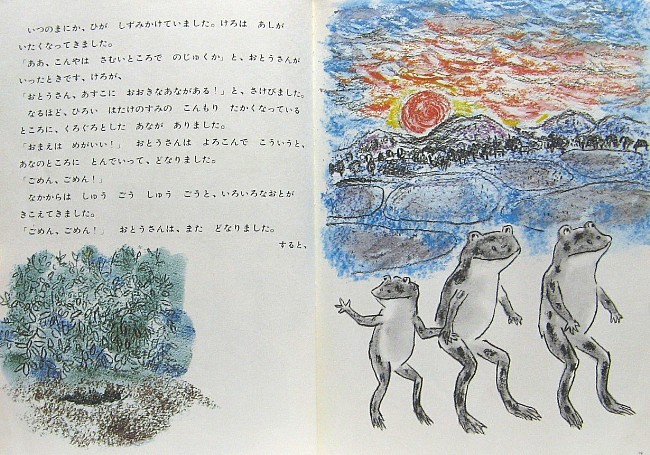 いつのまにか、ひが しずみかけていました。けろは あしが
いたくなってきました。
「ああ、こんやは さむいところで のじゅくか」と、おとうさんが
いったときです、けろが、
「おとうさん、あすこに おおきなあながある！」と、さけびました。
なるほど、ひろい はたけのすみの こんもり たかくなっている
ところに、くろぐろとした あなが ありました。
「おまえは めがいい！」 おとうさんは よろこんで こういうと、
あなのところに とんでいって、どなりました。
「ごめん、ごめん！」
なかからは しゅう ごう しゅう ごうと、いろいろなおとが
きこえてきました。
「ごめん、ごめん！」 おとうさんは、また どなりました。
すると、